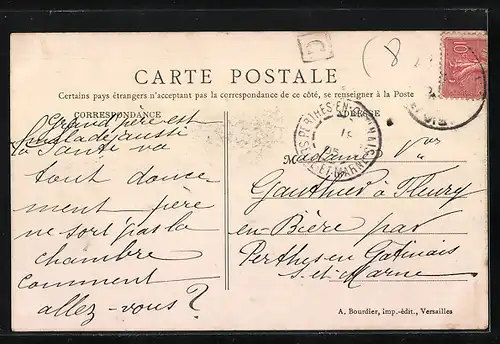 CARTE POSTALE
Certains pays étrangers n'acceptent pas la correspondance de ce côté, se renseigner à la Poste
CORRESPONDANCE
ADRESSE
Grand'père est
malade aussi
la Santé va
tout douce
ment père
ne sort pas la
chambre
comment
allez-vous?
C
8
10
PERTHES-EN-GATINAIS
Madame Vve
Gauthier à Fleury
en Bière par
Perthes en Gatinais
S. et Marne
A. Bourdier, imp.-édit., Versailles